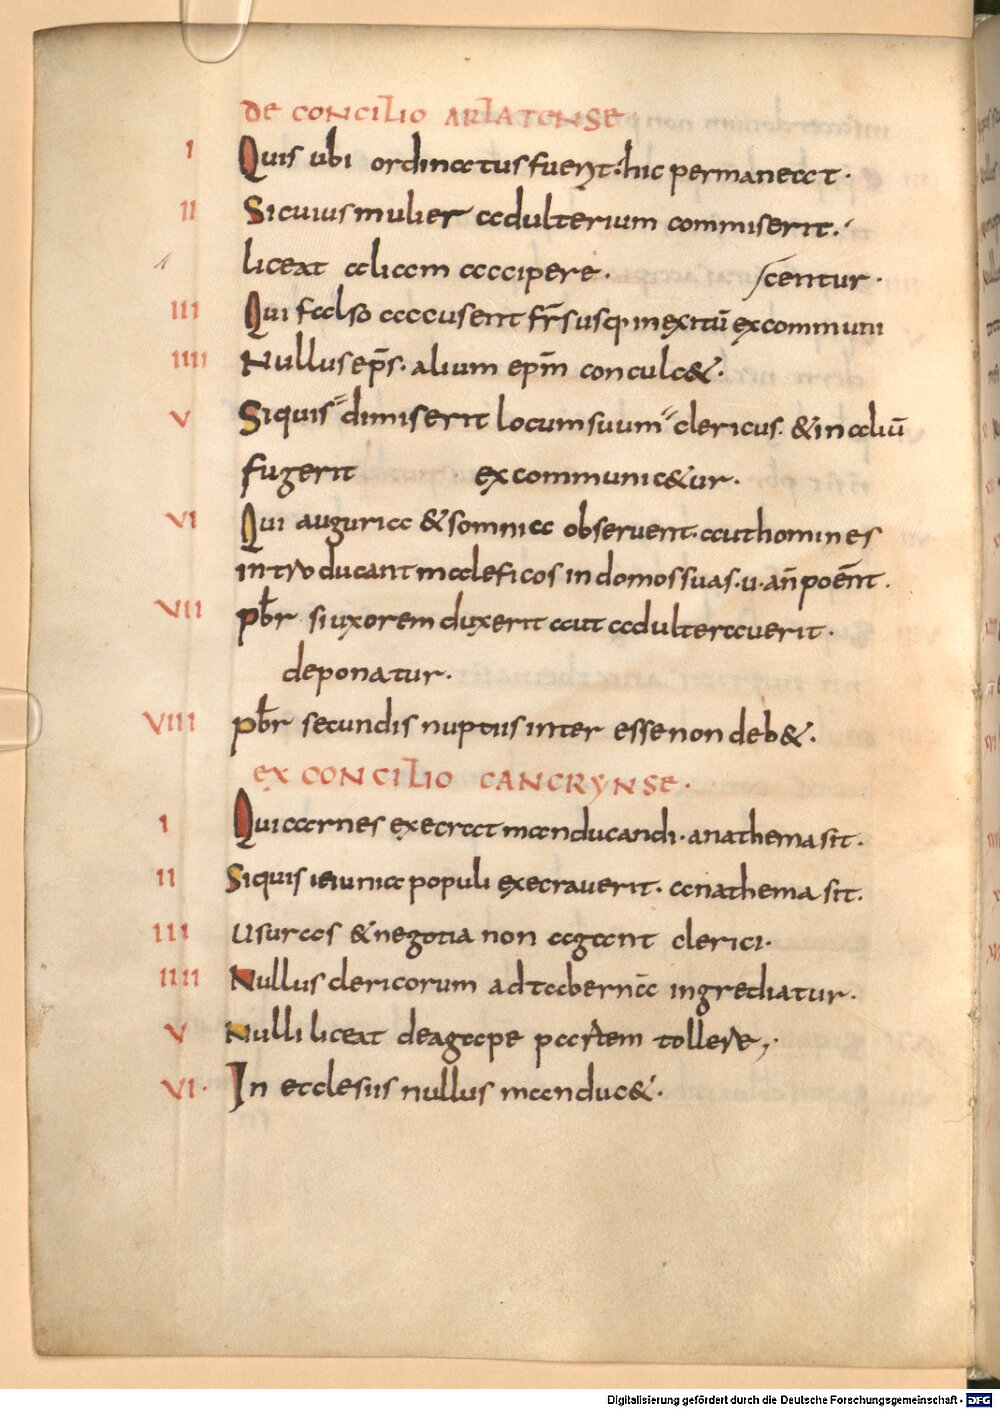 De CONCILIO ARLATENSE
I Quis ubi ordinatus fuer̄t· hic permaneat·
II Sicuius mulier adulterium commiserit·
liceat aliam accipere· /centur·
III Qui falso accusent fr̄s usq; in exitū excommuni
IIII Nullus ep̄s· alium ep̄m conculc&·
V Siquis dimiserit locum suum clericus· & in aliū
fugerit excommunic&ur·
VI Qui auguria & somnia observent· aut homines
introducant maleficos in domos suas· u· an̄ poēnt·
VII pb̄r si uxorem duxerit aut adulteraverit·
deponatur·
VIII pb̄r secundis nuptiis inter esse non deb&·
ex CONCILIO CANCRYNSE·
I Qui carnes execrat manducandi· anathema sit·
II Siquis ieiunia populi execraverit· anathema sit·
III Usuras & negotia non agant clerici·
IIII Nullus clericorum ad taberna ingrediatur·
V Nulli liceat de agape partem tollere;·
VI· In ecclesiis nullus manduc&·
Digitalisierung gefördert durch die Deutsche Forschungsgemeinschaft - DFG